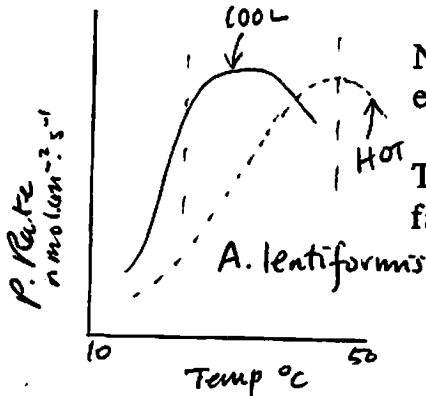 COOL
HOT
A. lentiformis
P. Rate
n mol.cm⁻².s⁻¹
10
50
Temp °C
N
e
T
f